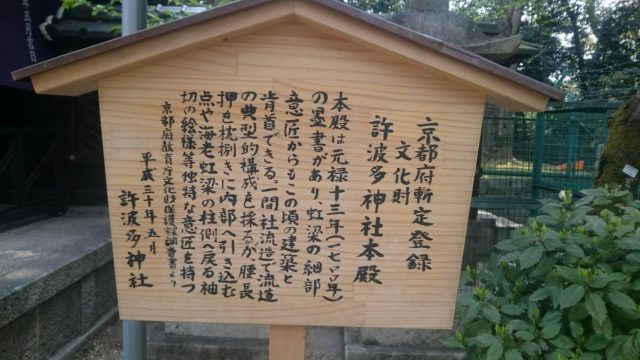 京都府暫定登録
文化財
許波多神社本殿
本殿は元禄十三年(一七〇〇年)
の墨書があり、虹梁の細部
意匠からもこの頃の建築と
肯首できる。一間社流造で流造
の典型的構成を採るが、腰長
押を枕捌きに内部へ引き込む
点や海老虹梁の柱側へ戻る袖
切の絵様等独特な意匠を持つ
京都府教育庁文化財保護課調査書より
平成三十年五月
許波多神社
年五月吉日